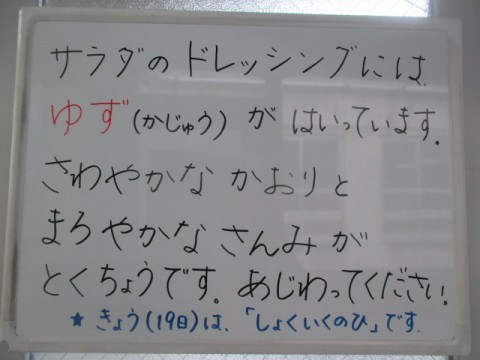 サラダのドレッシングには
ゆず(かじゅう)が はいっています。
さわやかな かおりと
まろやかな さんみが
とくちょうです。あじわってください。
★きょう(19日)は、「しょくいくのひ」です。